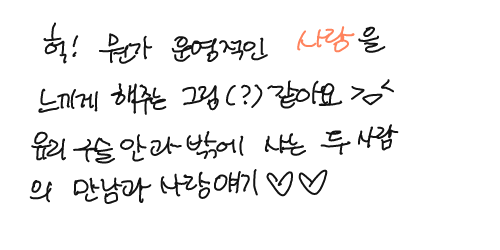 헉! 뭔가 운명적인 사랑을
느끼게 해주는 그림(?) 같아요 >_<
유리 구슬 안과 밖에 사는 두 사람
의 만남과 사랑얘기♡♡